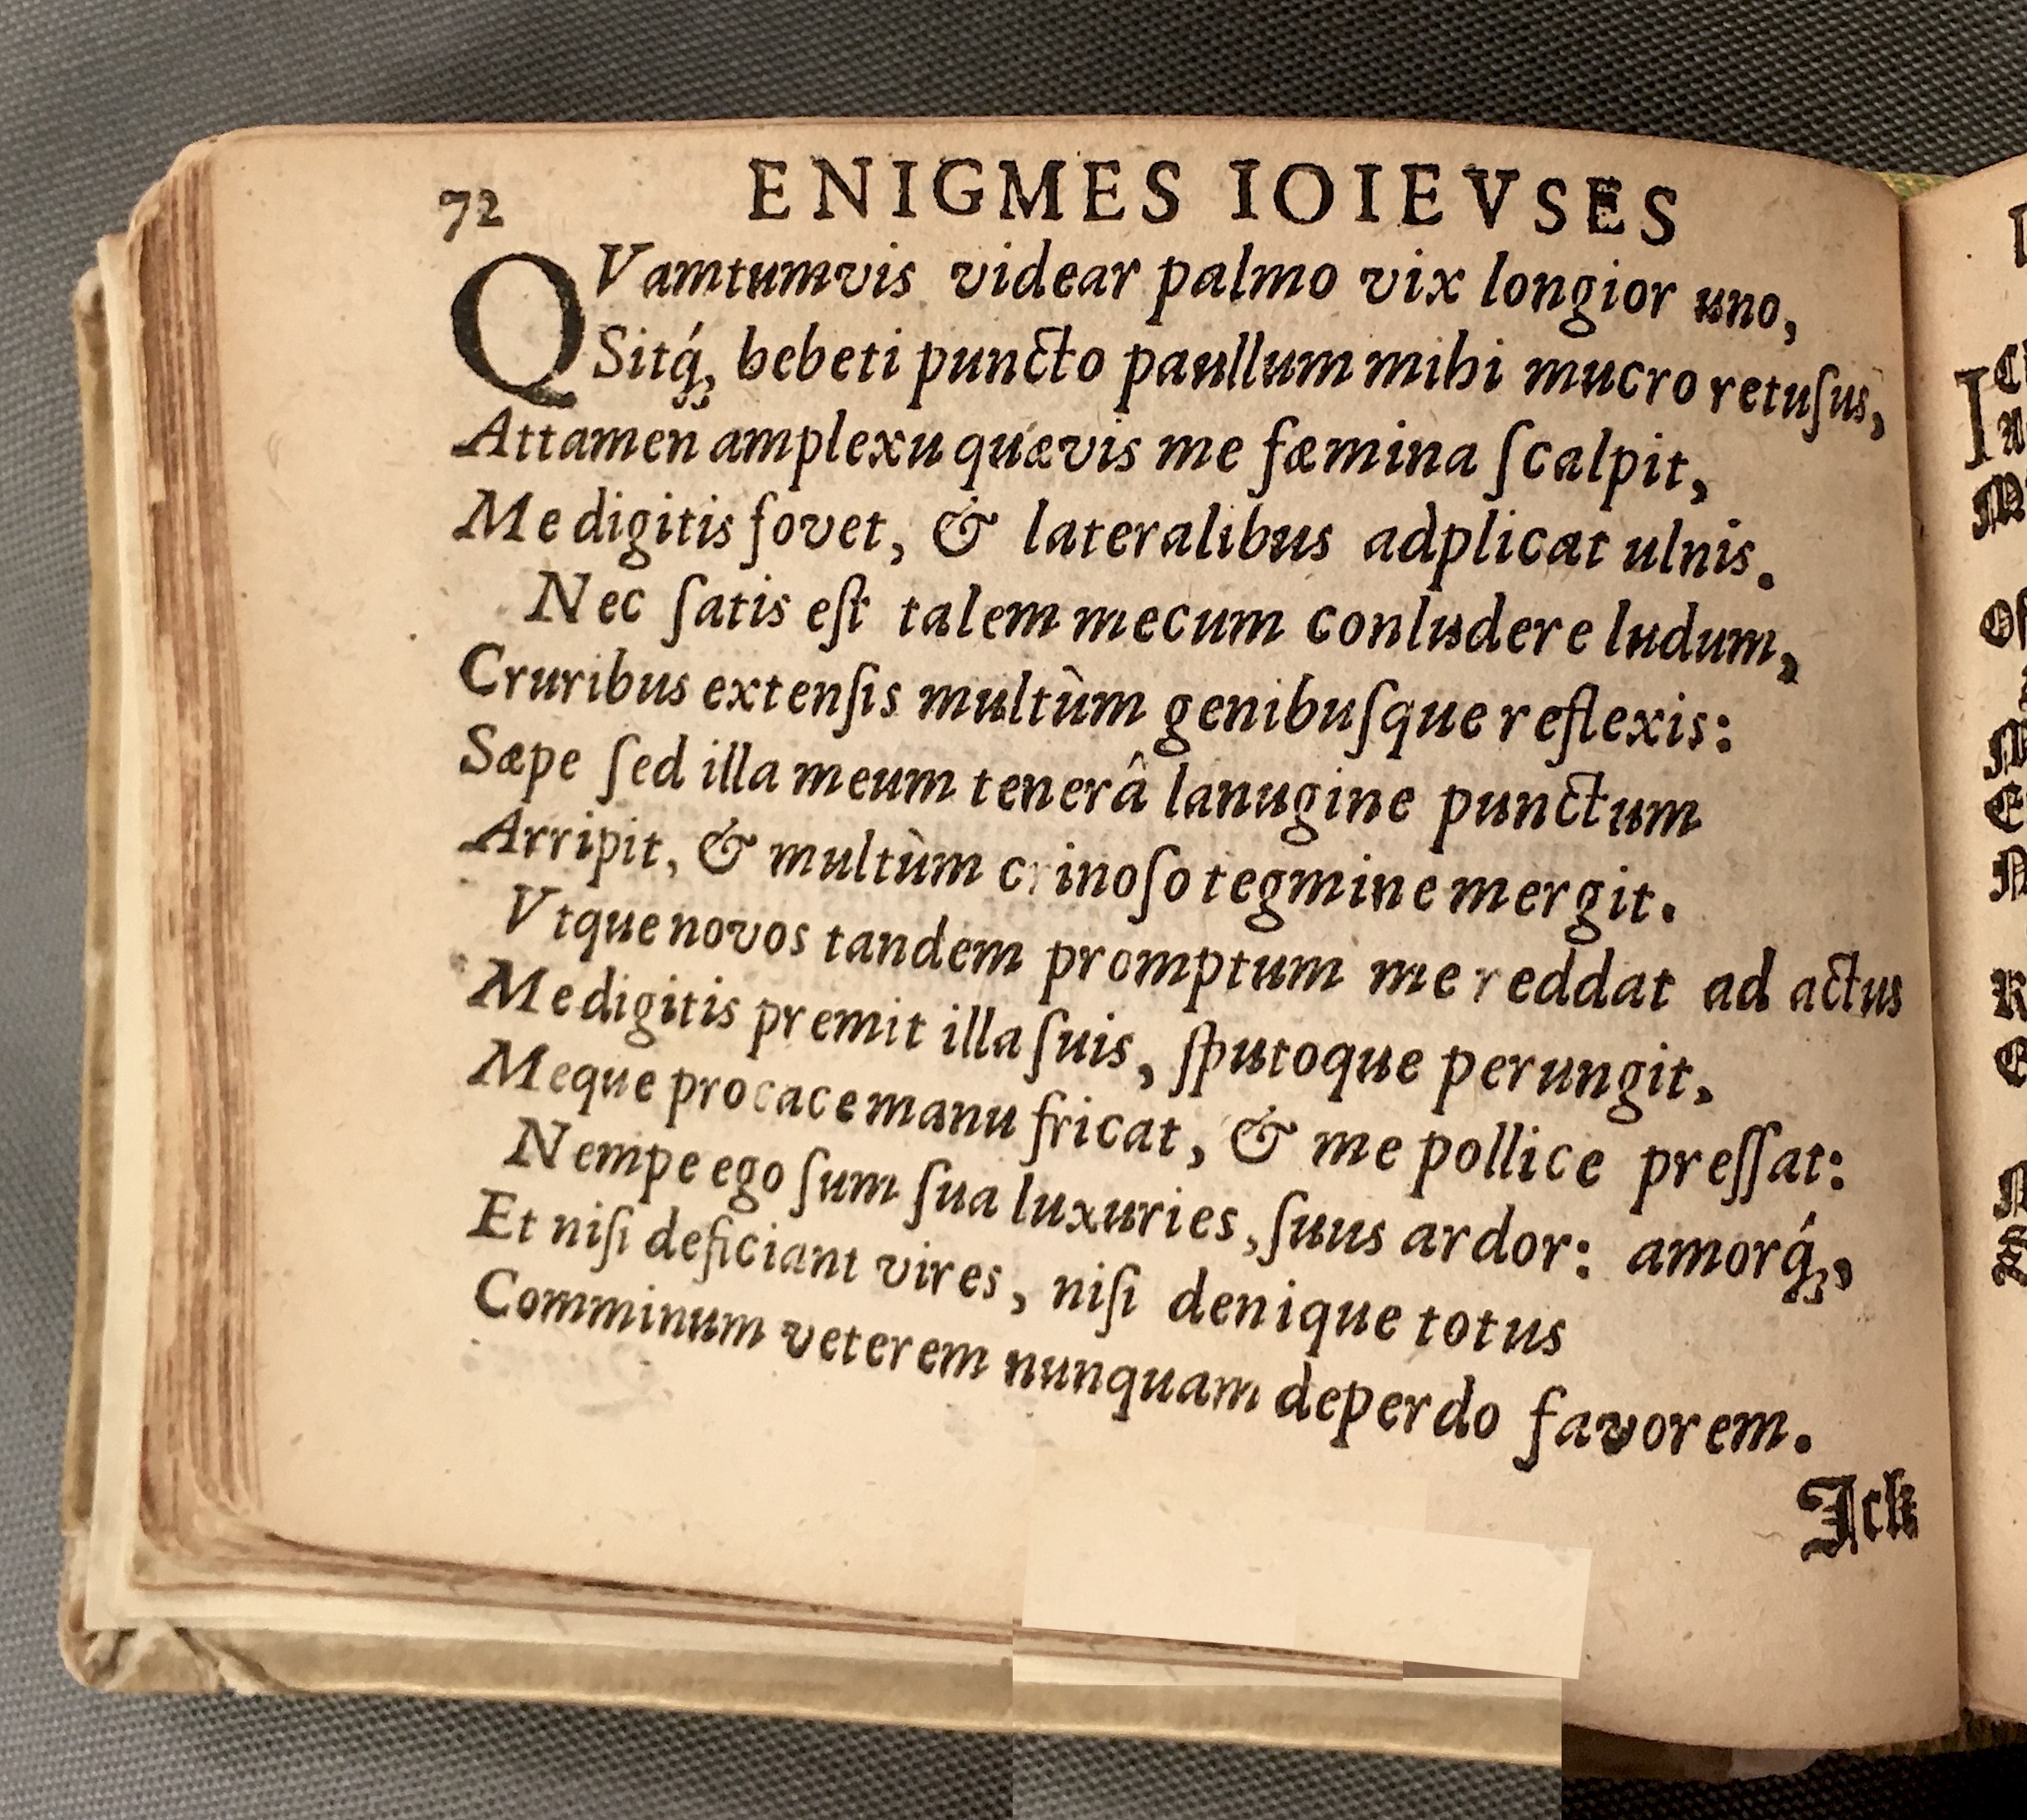 72 ENIGMES IOIEVSES
QVamtumvis videar palmo vix longior uno,
Sitq́ꝫ, bebeti puncto paullum mihi mucro retuſus,
Attamen amplexu quævis me fæmina ſcalpit,
Me digitis fovet, & lateralibus adplicat ulnis.
Nec ſatis eſt talem mecum conludere ludum,
Cruribus extenſis multùm genibuſque reflexis:
Sæpe ſed illa meum tenerâ lanugine punctum
Arripit, & multùm crinoſo tegmine mergit.
Vtque novos tandem promptum me reddat ad actus
Me digitis premit illa ſuis, ſputoque perungit.
Meque procace manu fricat, & me pollice preſſat:
Nempe ego ſum ſua luxuries, ſuus ardor: amorq́ꝫ,
Et niſi deficiant vires, niſi denique totus
Comminum veterem nunquam deperdo favorem.
Ick